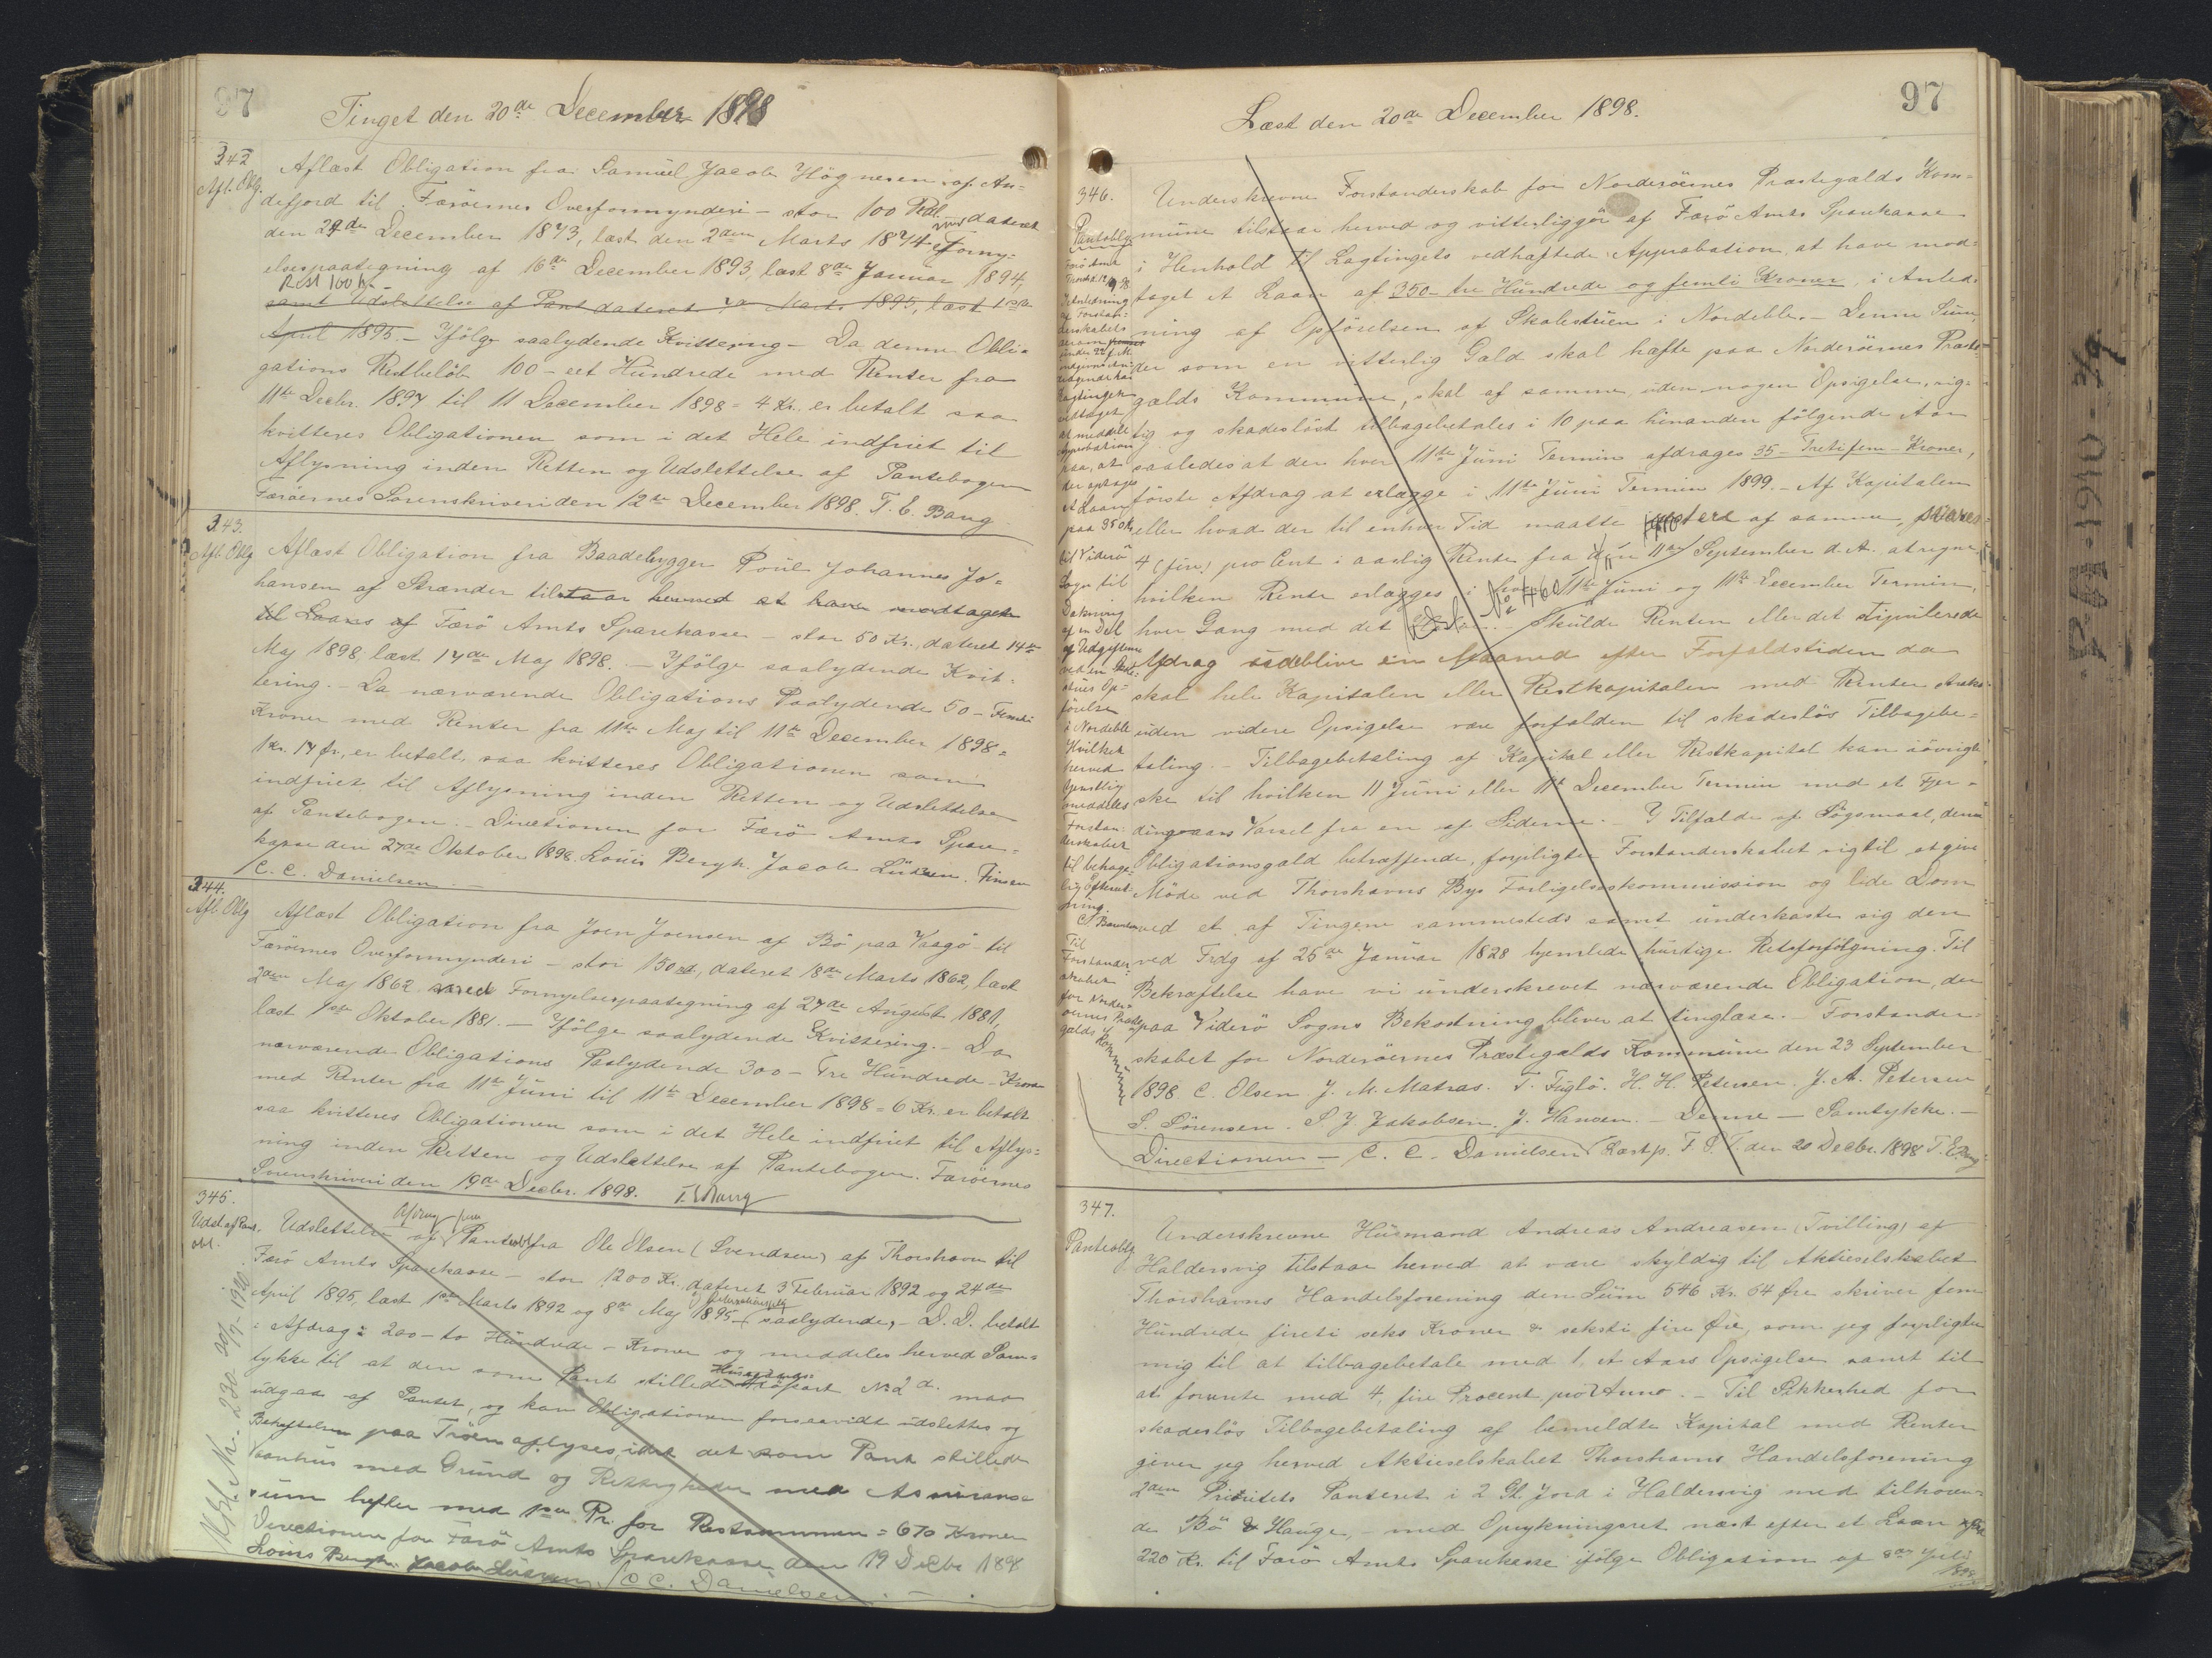 97
Tinget den 20de December 1898
342
Afl. Obl.
Aflæst Obligation fra Samuel Jacob Högnesen af An=
defjord til Færöernes Overformynderi – stor 100 Rdl. dateret
den 29de December 1873, læst den 2den Marts 1874 med Forny=
elsespaategning af 16de December 1893, læst 8de Januar 1894,
Rest 100 Kr.
samt Udslettelse af Pant dateret Marts 1895, læst 1ste
April 1895. – Ifölge saalydende Kvittering – Da denne Obli=
gations Restbelöb 100 – eet Hundrede med Renter fra
11te Decbr. 1897 til 11 December 1898 = 4 Kr. er betalt saa
kvitteres Obligationen som i det Hele indfriet til
Aflysning inden Retten og Udslettelse af Pantebogen
Færöernes Sorenskriveri den 12te December 1898. T. E. Bang
343.
Afl. Oblg
Aflæst Obligation fra Baadebygger Poul Johannes Jo=
hansen af Strænder tilstaar herved at have modtaget
til Laans af Færö Amts Sparekasse – stor 50 Kr., dateret 14te
Maj 1898, læst 17de Maj 1898. – Ifölge saalydende Kvit=
tering. – Da nærværende Obligations Paalydende 50 – Femti
Kroner med Renter fra 11te Maj til 11te December 1898 =
1 Kr. 17 Ør, er betalt, saa kvitteres Obligationen som
indfriet til Aflysning inden Retten og Udslettelse
af Pantebogen. – Directionen for Færö Amts Spare=
kasse den 27de Oktober 1898. Louis Bergh. Jacob Lützen. Finsen
/C. C. Danielsen. –
344.
Afl. Oblg
Aflæst Obligation fra Joen Joensen af Bö paa Vaagö til
Færöernes Overformynderi – stor 150 rd, dateret 18de Marts 1862, læst
2den Maj 1862 med Fornyelsespaategning af 27de August 1881,
læst 1ste Oktober 1881. – Ifölge saalydende Kvittering. – Da
nærværende Obligations Paalydende 300 – Tre Hundrede – Kroner
med Renter fra 11te Juni til 11te December 1898 = 6 Kr. er betalt
saa kvitteres Obligationen som i det Hele indfriet til Aflys=
ning inden Retten og Udslettelse af Pantebogen. Færöernes
Sorenskriveri den 19de Decbr. 1898. T. E. Bang
345.
Udsl. af Pant.
obl.
Afdrag paa
Udslettelse af Panteobl fra Ole Olsen (Svendsen) af Thorshavn til
Færö Amts Sparekasse – stor 1200 Kr. dateret 3 Februar 1892 og 24de
April 1895, læst 1ste Marts 1892 og 8de Maj 1895 – saalydende, – D. D. betalt
i Afdrag: 200 – to Hundrede – Kroner og meddeles herved Sam=
tykke til at den som Pant stillede No 2 d. maa
udgaa af Pantet, og kan Obligationen forsaavidt udslettes og
Behæftelsen paa Tröen aflyses, idet det som Pant stillede
Vaanhus med Grund og Rettigheder med Assurance
sum hefter med 1ste Pr. for Restsummen = 670 Kroner
Directionen for Færö Amts Sparekasse den 19 Decbr 1898
Louis Bergh. Jacob Lützen. /C. C. Danielsen. –
97
Læst den 20de December 1898.
346.
Panteoblg
Underskrevne Forstanderskab for Norderöernes Præstegælds Kom=
mune tilstaar herved og vitterliggör af Færö Amts Sparekasse
i Henhold til Lagtingets vedhæftede Approbation at have mod=
taget et Laan af 350 – tre Hundrede og femti Kroner, i Anled=
ning af Opförelsen af Skolestuen i Nordeble. – Denne Sum,
der som en vitterlig Gæld skal hæfte paa Norderöernes Præste=
gælds Kommune, skal af samme, uden nogen Opsigelse, rig=
tig og skadeslöst tilbagebetales i 10 paa hinanden fölgende Aar
saaledes at der hver 11te Juni Termin afdrages 35 – Tretifem – Kroner,
förste Afdrag at erlægge i 11te Juni Termin 1899. – Af Kapitalen
eller hvad der til enhver Tid maatte restere af samme, svares
4 (fire) pro Cent i aarlig Rente fra den 11te September d. A. at regne,
hvilken Rente erlægges i hver 11te Juni og 11te December Termin,
hver Gang med det – Skulde Renten eller det stipulerede
Afdrag udeblive en Maaned efter Forfaldstiden da
skal hele Kapitalen eller Restkapitalen med Renter straks
uden videre Opsigelse være forfalden til skadeslös Tilbagebe=
taling. – Tilbagebetaling af Kapital eller Restkapital kan iövrigt
ske til hvilken 11 Juni eller 11te December Termin med et Fjer=
dingaars Varsel fra en af Siderne. – I Tilfælde af Sögsmaal, denne
Obligationsgæld betræffende, forpligter Forstanderskabet sig til at give
Möde ved Thorshavns Bys Forligelseskommission og lide Dom
ved et af Tingene sammesteds samt underkaste sig den
ved Frdg af 25de Januar 1828 hjemlede hurtige Retsforfölgning. Til
Bekræftelse have vi underskrevet nærværende Obligation, der
paa Viderö Sogns Bekostning bliver at tinglæse. – Forstander=
skabet for Norderöernes Præstegælds Kommune den 23 September
1898. C. Olsen J. M. Matras. T. Fuglö. H. H. Petersen. J. A. Petersen
S. Sörensen. S. J. Jakobsen. J. Hansen. – Denne – Samtykke. –
Directionen – C. C. Danielsen. Læst p. F. S. T. den 20 Decbr. 1898 T. E. Bang
Færö Amt
Thorsh. 12/9 98.
I Anledning
af Forstan=
derskabets
Lagtinget
vedtaget
at meddele
Approbation
paa, at
der optages
et Laan
paa 350 Kr
til Viderö
Sogn til
Dækning
af en Del
af Udgifterne
ved en Skole=
stues Op=
förelse
i Nordeble
Hvilket
herved
tjenstlig
meddeles
Forstan=
derskabet
til behage=
lig Efterret=
ning.
Til
Forstander=
skabet
for Norder=
öernes Præste
gælds Kommune
347.
Panteoblg
Underskrevne Husmand Andreas Andreasen (Tvilling) af
Haldersvig tilstaar herved at være skyldig til Aktieselskabet
Thorshavns Handelsforening den Sum 546 Kr. 64 Øre skriver fem
Hundrede fireti seks Kroner & seksti fire Øre, som jeg forpligter
mig til at tilbagebetale med 1, et Aars Opsigelse samt til
at forrente med 4, fire Procent pro Anno. – Til Sikkerhed for
skadeslös Tilbagebetaling af bemeldte Kapital med Renter
giver jeg herved Aktieselskabet Thorshavns Handelsforening
2den Prioritets Panteret i 2 Gl. Jord i Haldersvig med tilhören=
de Bö & Hauge, – med Oprykningsret næst efter et Laan
220 Kr. til Færö Amts Sparekasse ifölge Obligation af 8de Juli
1898